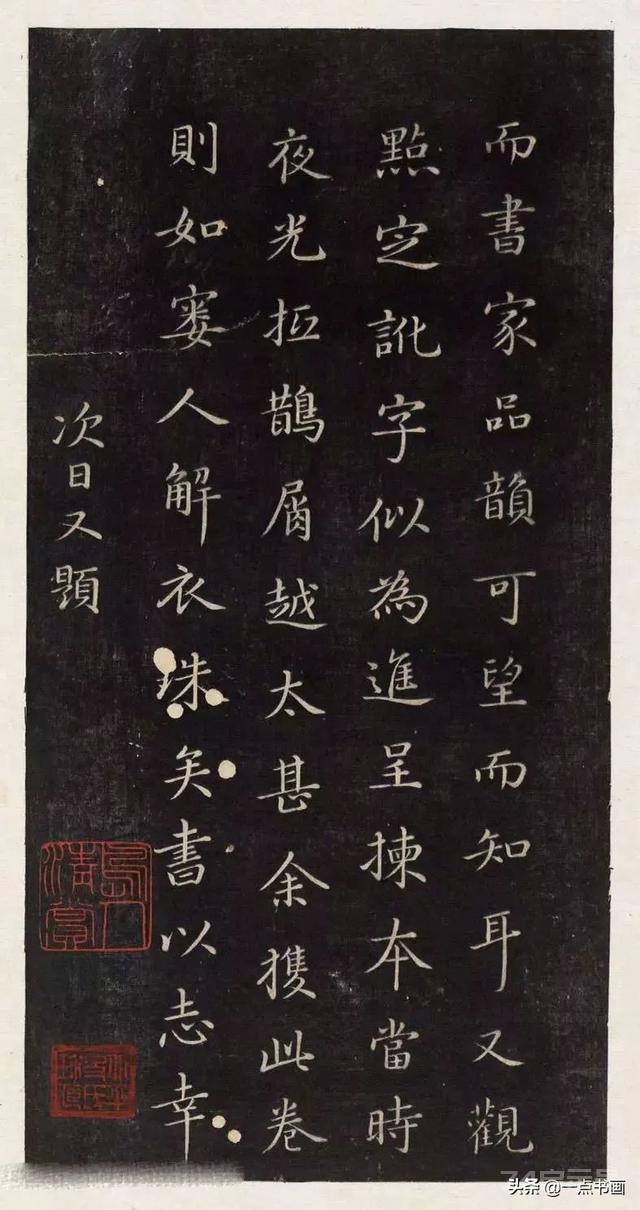 而書家品韻可望而知耳又觀
點定訛字似為進呈揀本當時
夜光抵鵲屑越太甚余獲此卷
則如窶人解衣珠矣書以志幸
次日又題
头条 @一点书画